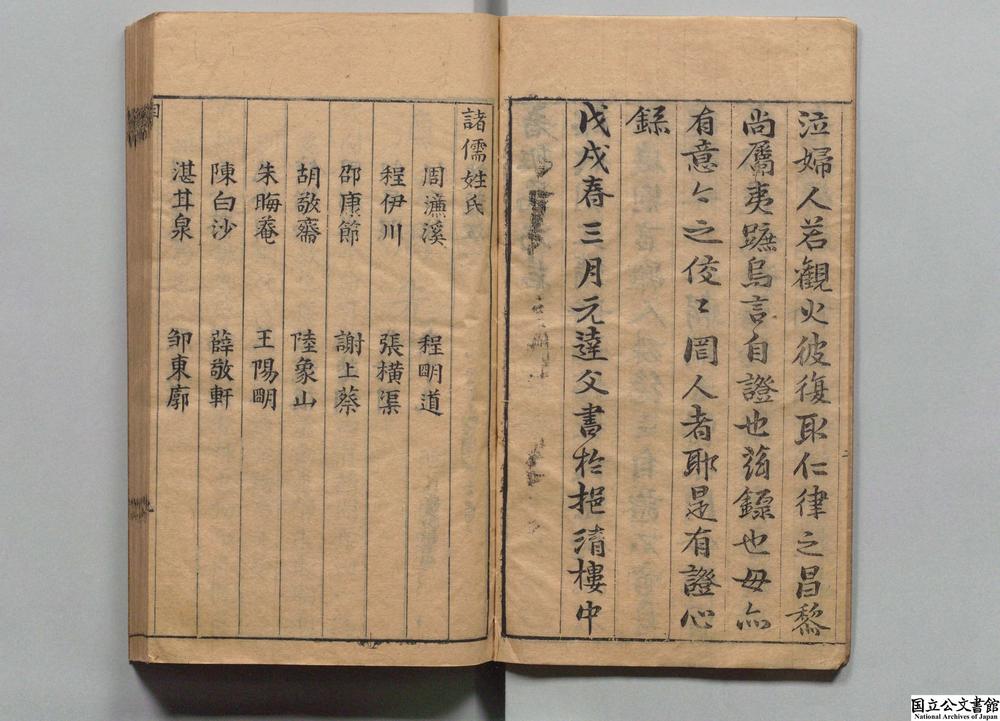 泣婦人若觀火彼復取仁律之昌黎
尚屬夷蹠烏言自證也茲錄也毋亦
有意乞之佼〻罔人者耶是有證心
錄
戊戌春三月元達父書於挹清樓中
諸儒姓氏
周濂溪 程明道
程伊川 張橫渠
邵康節 謝上蔡
胡敬齋 陸象山
朱晦菴 王陽明
陳白沙 薛敬軒
湛甘泉 鄒東廓
国立公文書館
National Archives of Japan